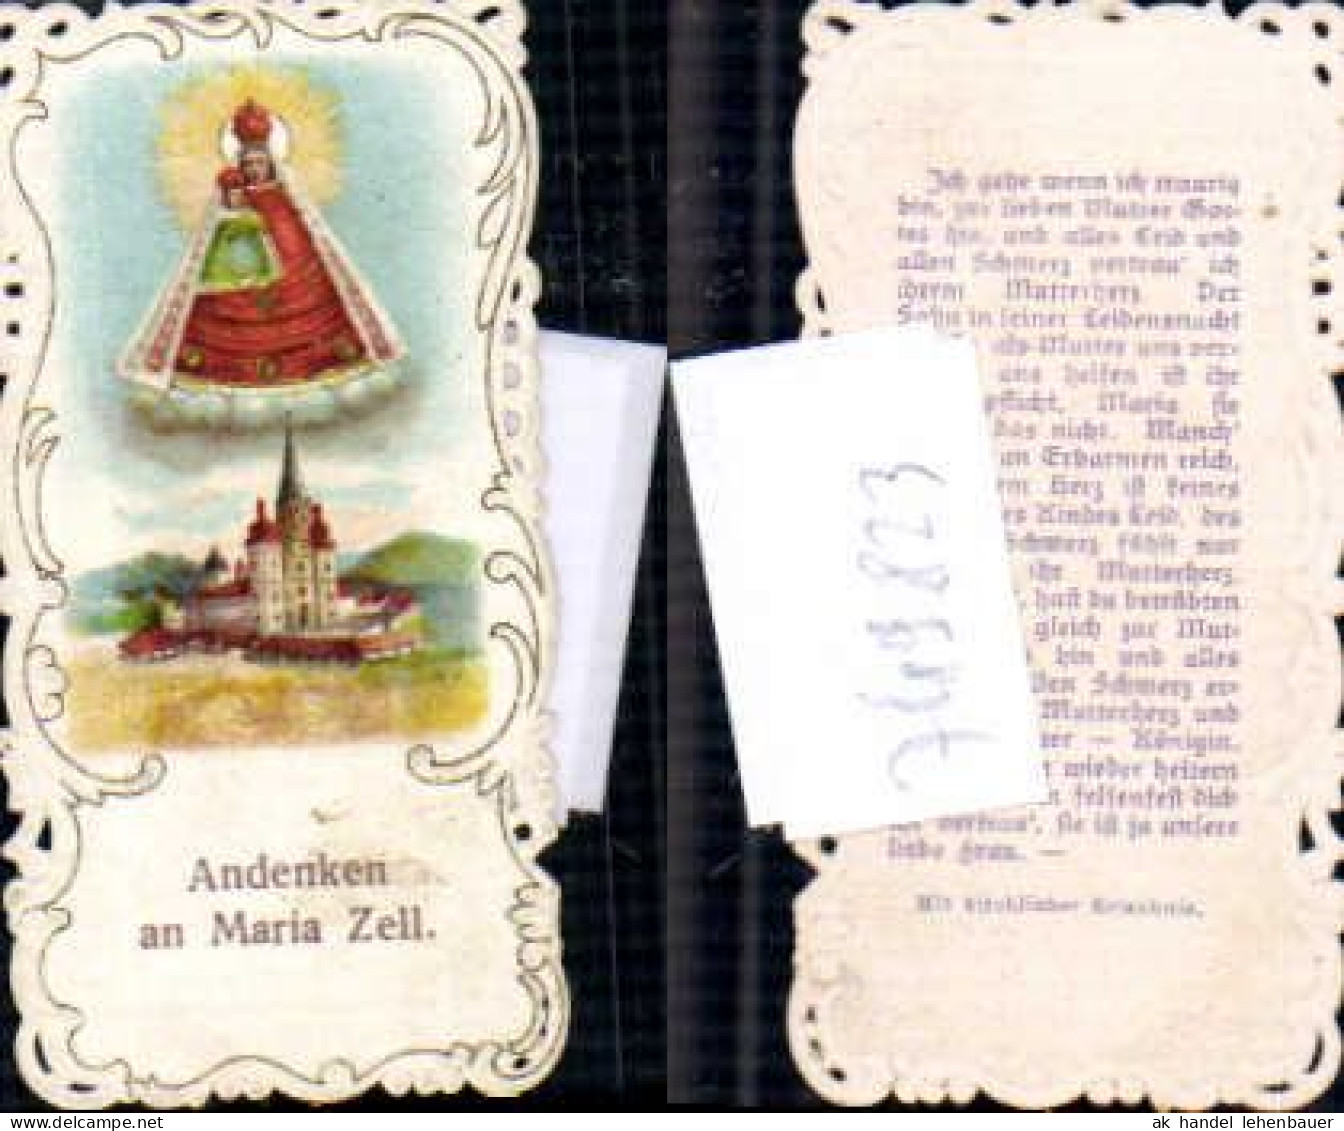 Andenken
an Maria Zell.
Ich gehe wenn ich traurig
bin, zur lieben Mutter Got-
tes hin, und alles Leid und
allen Schmerz vertrau' ich
ihrem Mutterherz. Der
Sohn in seiner Leidensnacht
als Mutter uns ver-
uns helfen ist ihr
pflicht, Maria sie
das nicht. Manch'
an Erbarmen reich,
Herz ist keines
Kindes Leid, des
Schmerz fühlt nur
ihr Mutterherz.
hast du betrübten
gleich zur Mut-
hin und alles
Den Schmerz er-
Mutterherz und
– Königin.
wieder heitern
felsenfest dich
vertrau', sie ist ja unsere
liebe Frau. —
Mit kirchlicher Erlaubnis.
769823
ak handel lehenbauer